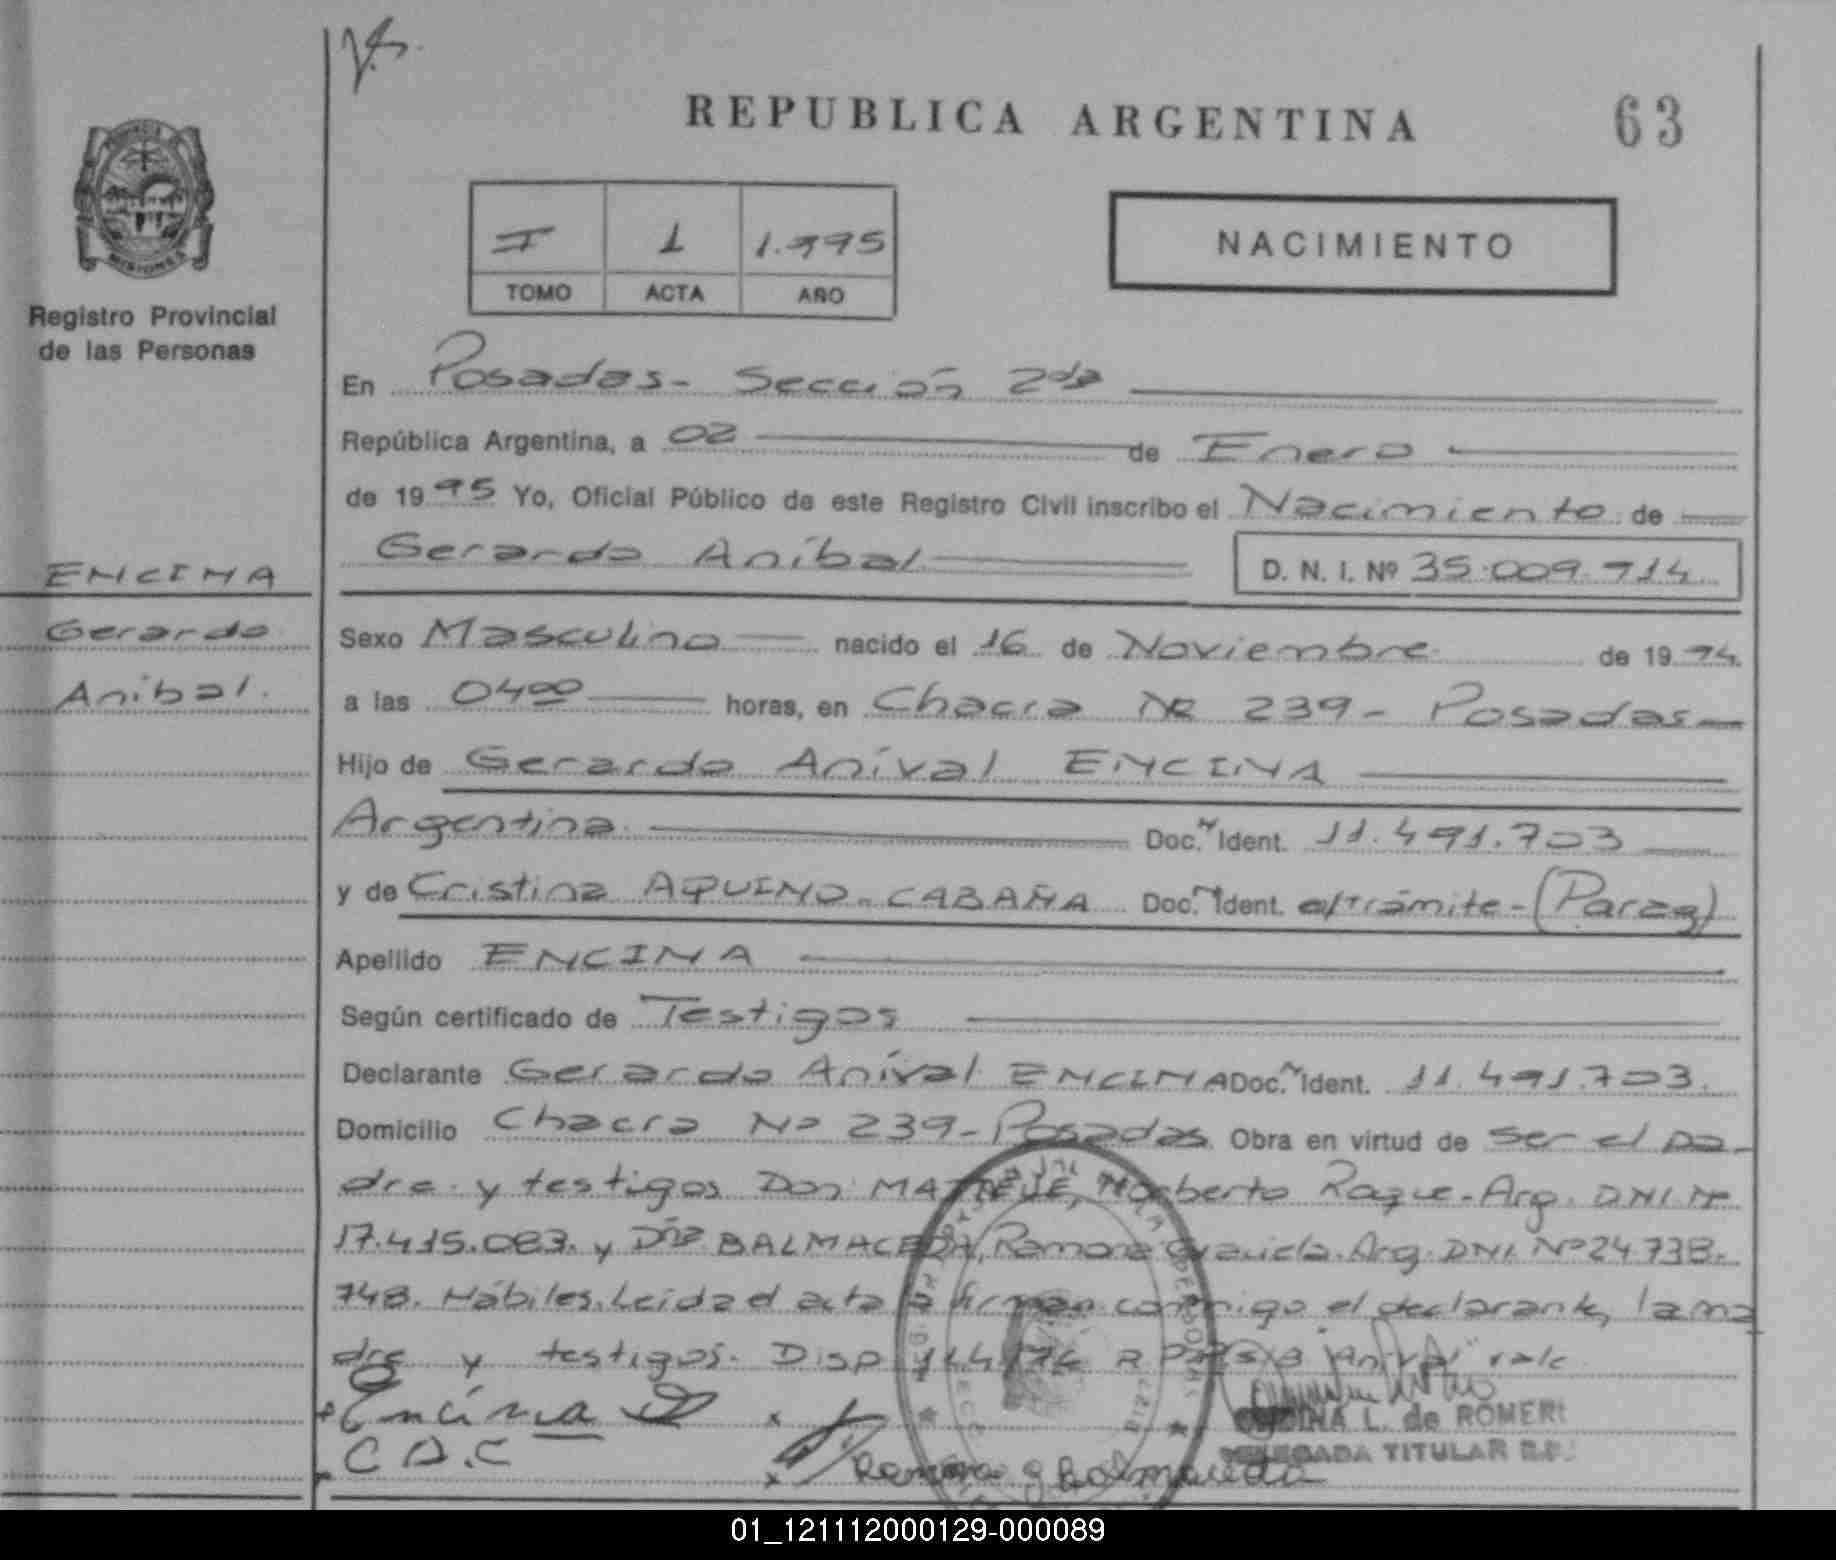 REPUBLICA ARGENTINA
63
MISIONES
Registro Provincial
de las Personas
I 1 1.995
TOMO ACTA AÑO
NACIMIENTO
En Posadas- Sección 2da
República Argentina, a 02 de Enero
de 1995 Yo, Oficial Público de este Registro Civil inscribo el Nacimiento de
Gerardo Aníbal D. N. I. Nº 35.009.914
ENCINA
Gerardo
Aníbal.
Sexo Masculino nacido el 16 de Noviembre de 1994.
a las 0400 horas, en Chacra Nº 239- Posadas-
Hijo de Gerardo Aníval ENCINA
Argentina Doc. Ident. 11.491.703
y de Cristina AQUINO-CABAÑA Doc. Ident. e/trámite-(Parag)
Apellido ENCINA
Según certificado de Testigos
Declarante Gerardo Aníval ENCINA Doc. Ident. 11.491.703.
Domicilio Chacra Nº 239-Posadas. Obra en virtud de ser el pa-
dre y testigos Don Norberto Roque-Arg. DNI.Nº
17.415.083. y Dña. BALMACEDA, Ramona Graciela. Arg. DNI. Nº24.738.
748. Hábiles. Leida el acta la firman conmigo el declarante, la ma
dre y testigos. Disp "Aníval" vale
Encina
C A.C
Ramona G Balmaceda
L. de ROMERO
DELEGADA TITULAR R.P.
01_121112000129-000089